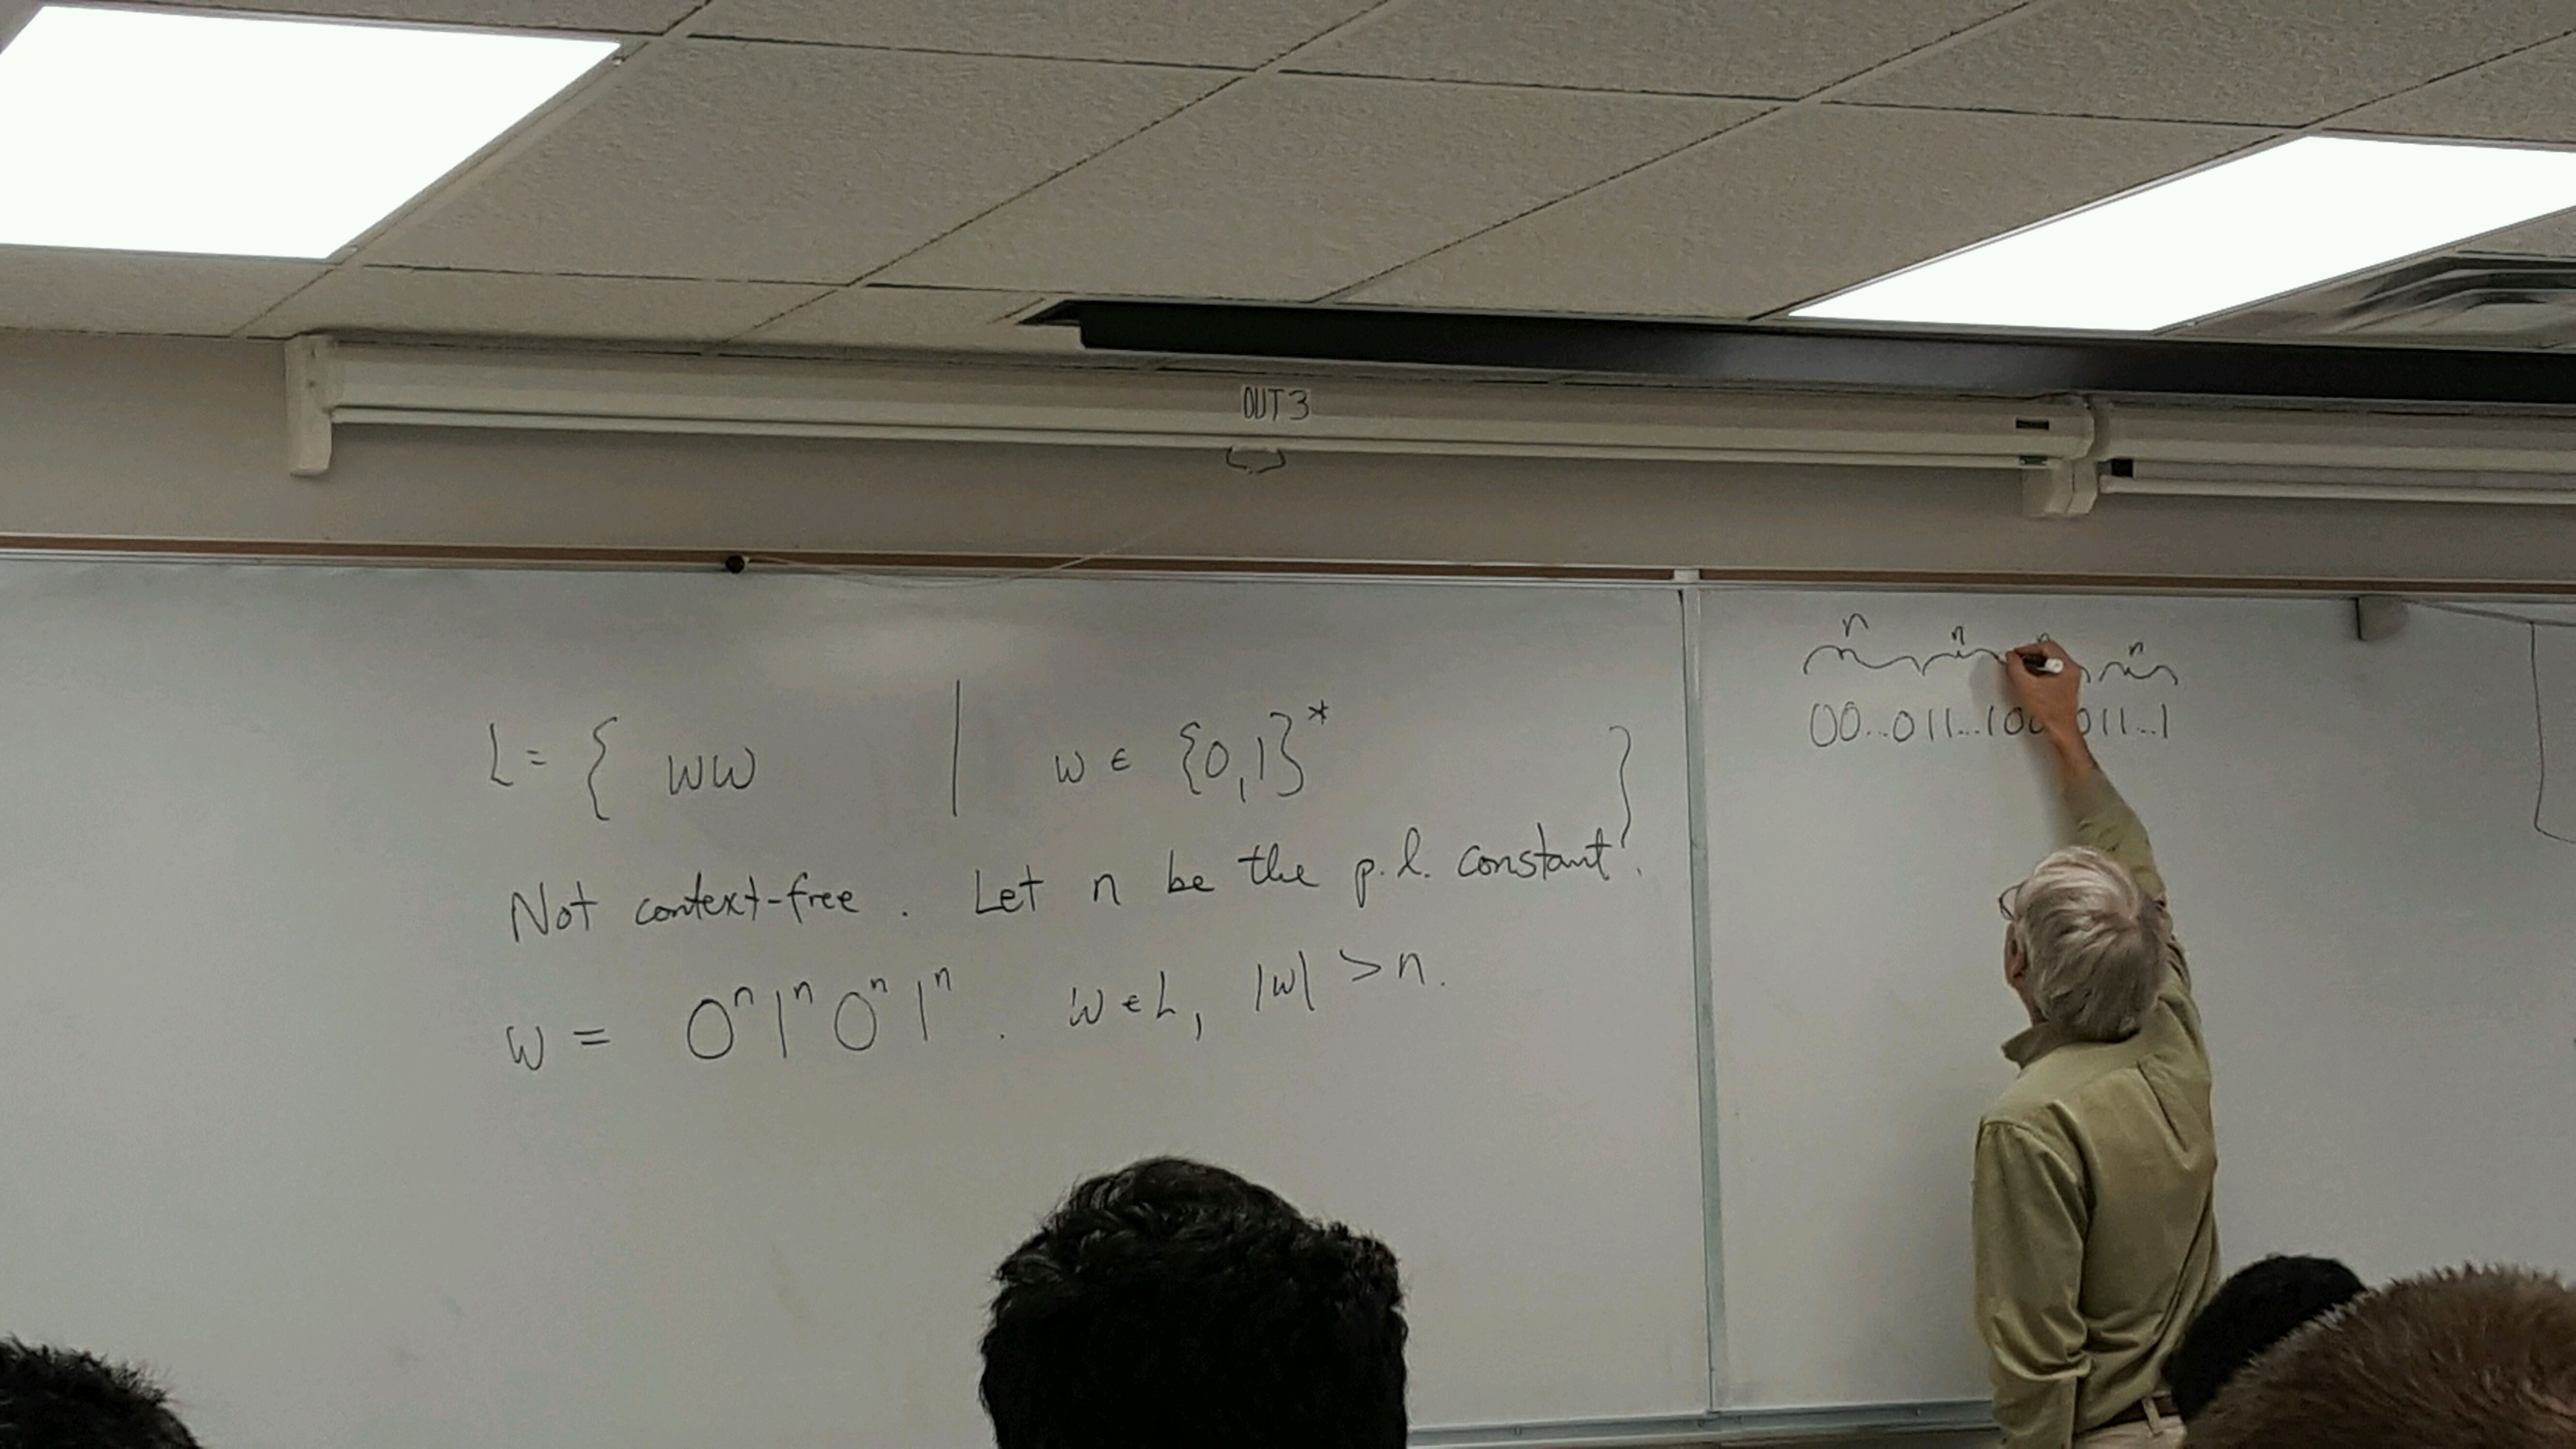 OUT 3
L = { ww | w ∈ {0,1}* }
Not context-free. Let n be the p.l. constant.
w = 0ⁿ1ⁿ0ⁿ1ⁿ. w ∈ L, |w| > n.
n n n n
00...011...100 011...1